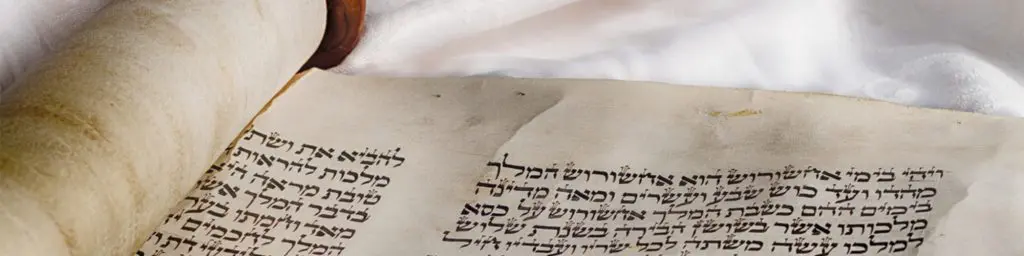 ויהי בימי אחשורוש הוא אחשורוש המלך
מהדו ועד כוש שבע ועשרים ומאה מדינה
בימים ההם כשבת המלך אחשורוש על כסא
מלכותו אשר בשושן הבירה בשנת שלוש
למלכו עשה משתה לכל שריו ועבדיו חיל
להביא את ושתי
מלכות להראות
טובת מראה היא
בדבר המלך אשר
מאד וחמתו
המלך לחכמים